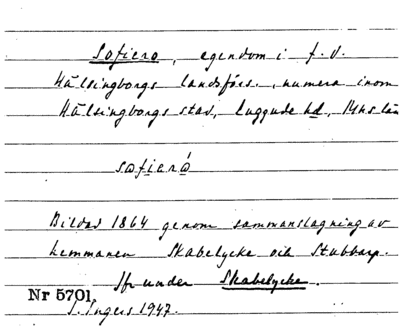 Sofiero, egendom i f.d.
Hälsingborgs landsförs., numera inom
Hälsingborgs stad, Luggude hd, M-hs län
sofierò
Bildad 1864 genom sammanslagning av
hemmanen Skabelycke och Stubbarp.
Jfr under Skabelycke.
Nr 5701.
I. Ingers 1947.